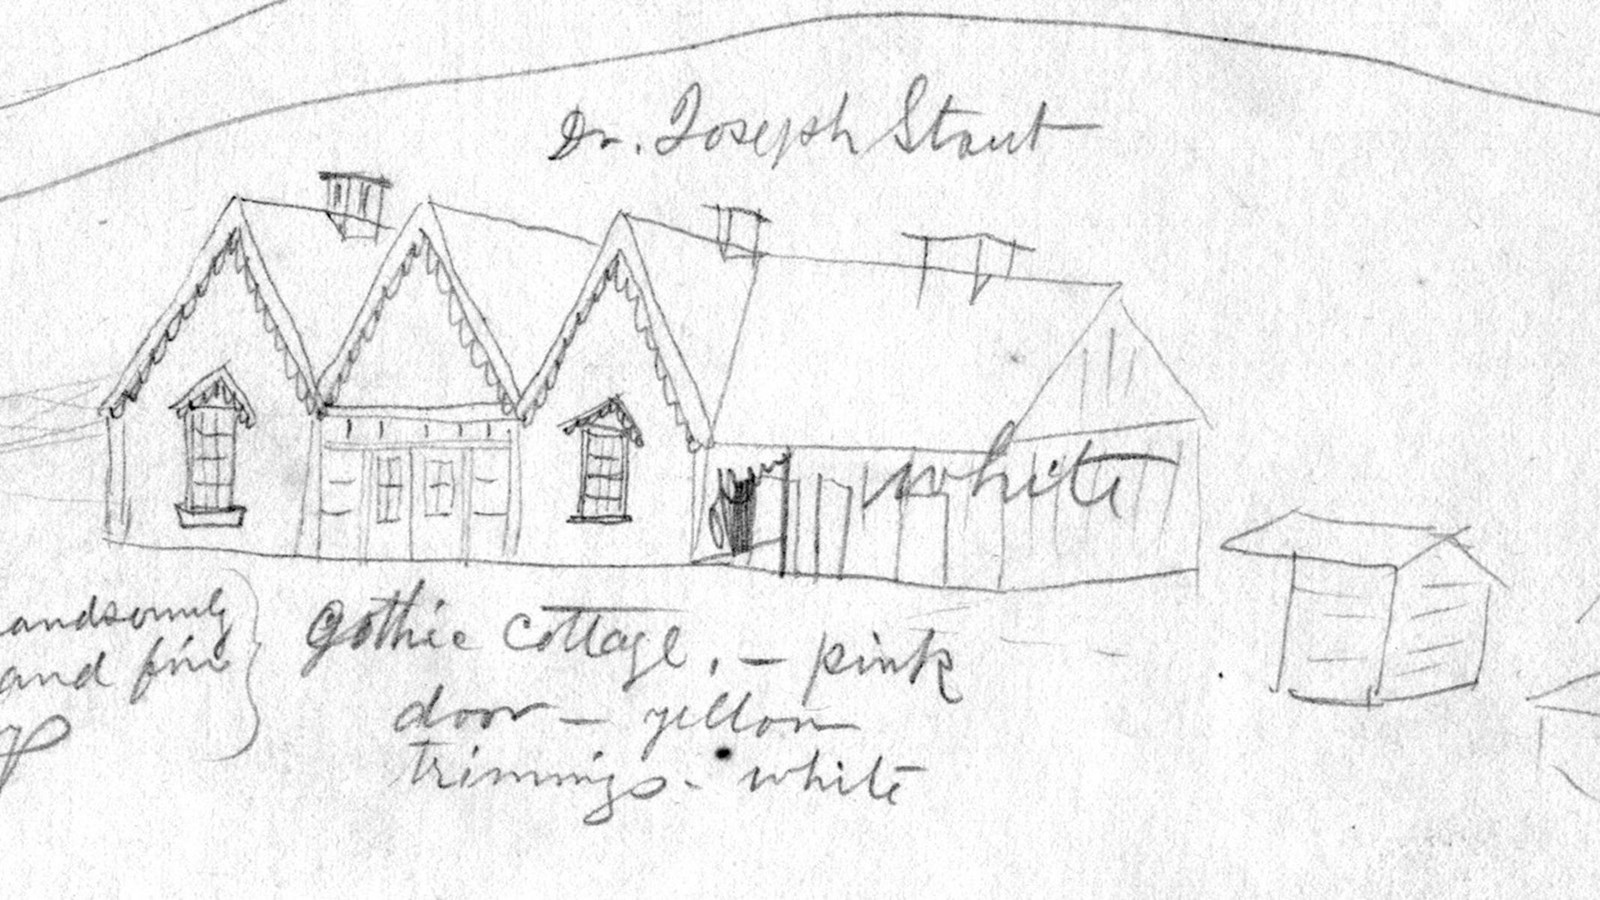 Dr. Joseph Stout
white
andsomely
and fine
Gothic Cottage, - pink
door - yellow
trimmings - white